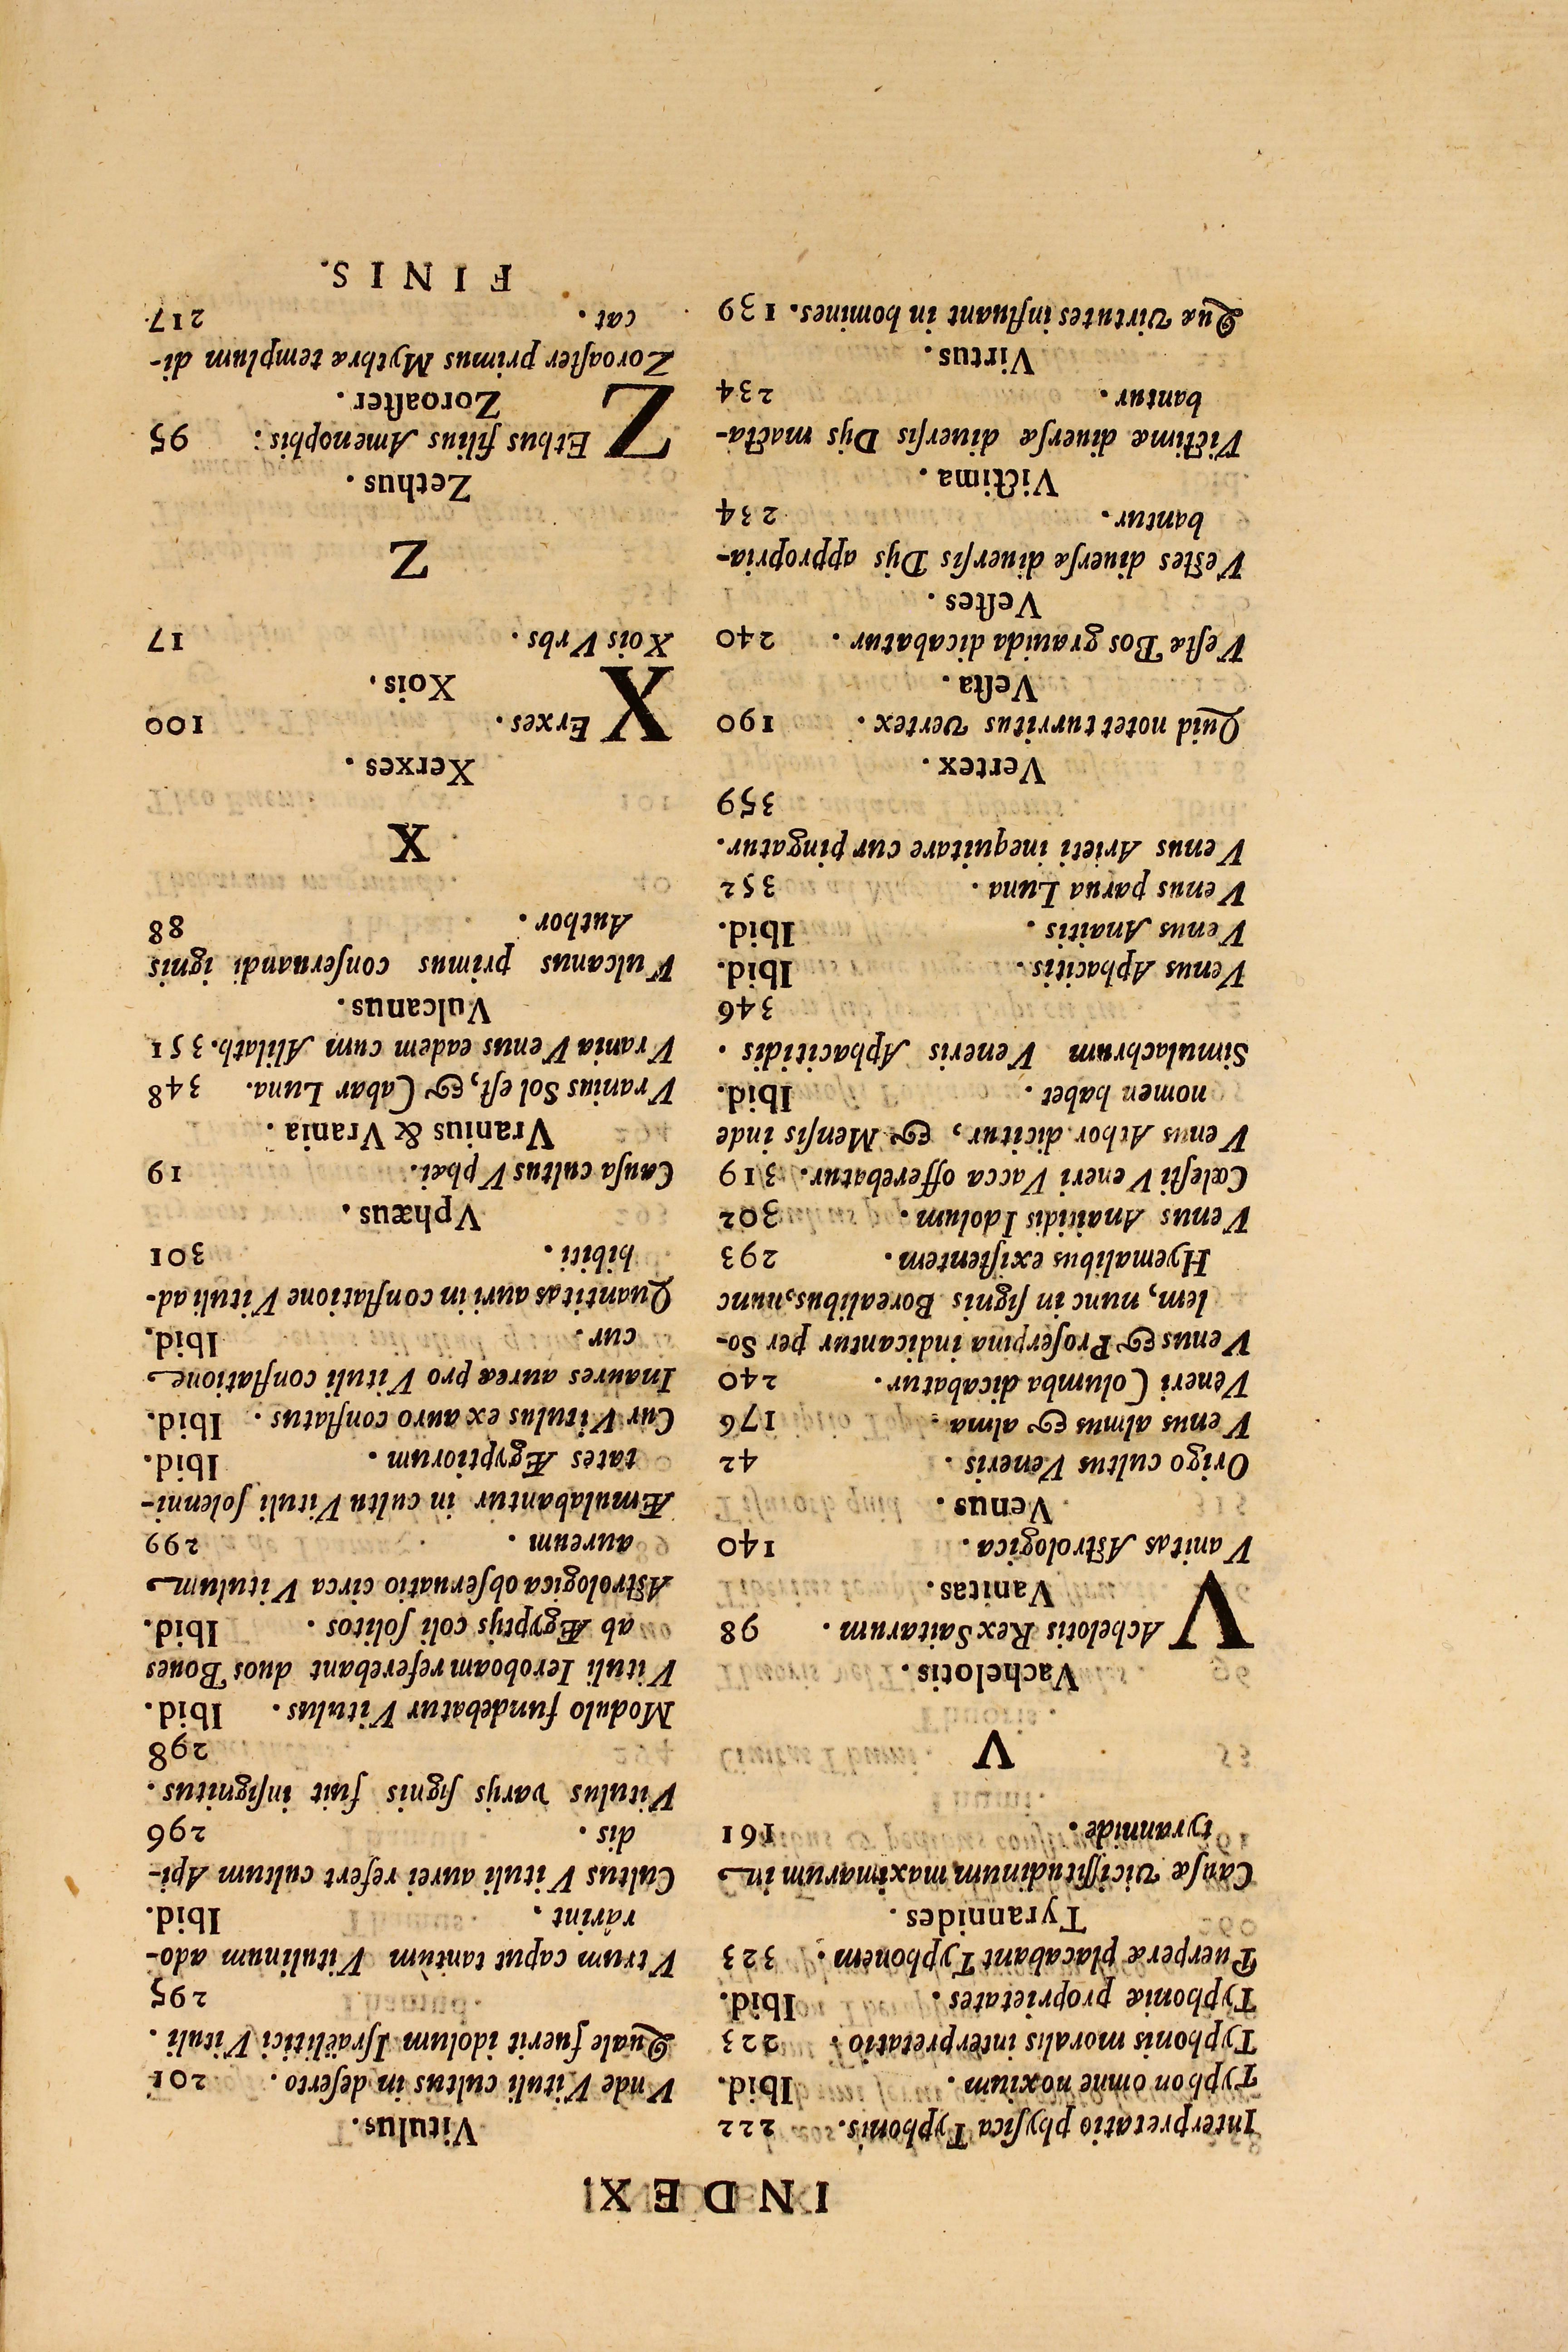 INDEX
Interpretatio phyſica Typhonis. 222
Typhon omne noxium. Ibid.
Typhonis moralis interpretatio. 223
Typhoniæ proprietates. Ibid.
Puerperæ placabant Typhonem. 323
Tyrannides.
Cauſæ viciſſitudinum maximarum in
tyrannide. 161
V
Vachelotis.
VAchelotis Rex Saitarum. 98
Vanitas.
Vanitas Aſtrologica. 140
Venus.
Origo cultus Veneris. 42
Venus almus & alma. 176
Veneri Columba dicabatur. 240
Venus & Proſerpina indicantur per So-
lem, nunc in ſignis Borealibus, nunc
Hyemalibus exiſtentem. 293
Venus Anaitidis Idolum. 302
Cœleſti Veneri Vacca offerebatur. 319
Venus Athor dicitur, & Menſis inde
nomen habet. Ibid.
Simulachrum Veneris Aphacitidis.
346
Venus Aphacitis. Ibid.
Venus Anaitis. Ibid.
Venus parua Luna. 352
Venus Arieti inequitare cur pingatur.
359
Vertex.
Quid notet turritus vertex. 190
Veſta.
Veſtæ Bos grauida dicabatur. 240
Veſtes.
Veſtes diuerſæ diuerſis Dijs appropria-
bantur. 234
Victima.
Victimæ diuerſæ diuerſis Dijs macta-
bantur. 234
Virtus.
Quæ virtutes influant in homines. 139
Vitulus.
Vnde Vituli cultus in deſerto. 201
Quale fuerit idolum Iſraëlitici Vituli.
295
Vtrum caput tantùm Vitulinum ado-
rârint. Ibid.
Cultus Vituli aurei refert cultum Api-
dis. 296
Vitulus varijs ſignis fuit inſignitus.
298
Modulo fundebatur Vitulus. Ibid.
Vituli Ieroboam referebant duos Boues
ab Ægyptijs coli ſolitos. Ibid.
Aſtrologica obſeruatio circa Vitulum
aureum. 299
Æmulabantur in cultu Vituli ſolenni-
tates Ægyptiorum. Ibid.
Cur Vitulus ex auro conflatus. Ibid.
Inaures aureæ pro Vituli conflatione
cur. Ibid.
Quantitas auri in conflatione Vituli ad-
hibiti. 301
Vphæus.
Cauſa cultus Vphæi. 19
Vranius & Vrania.
Vranius Sol eſt, & Cabar Luna. 348
Vrania Venus eadem cum Alilath. 351
Vulcanus.
Vulcanus primus conſeruandi ignis
Author. 88
X
Xerxes.
XErxes. 100
Xois.
Xois Vrbs. 17
Z
Zethus.
ZEthus filius Amenophis. 95
Zoroaſter.
Zoroaſter primus Mythræ templum di-
cat. 217
FINIS.